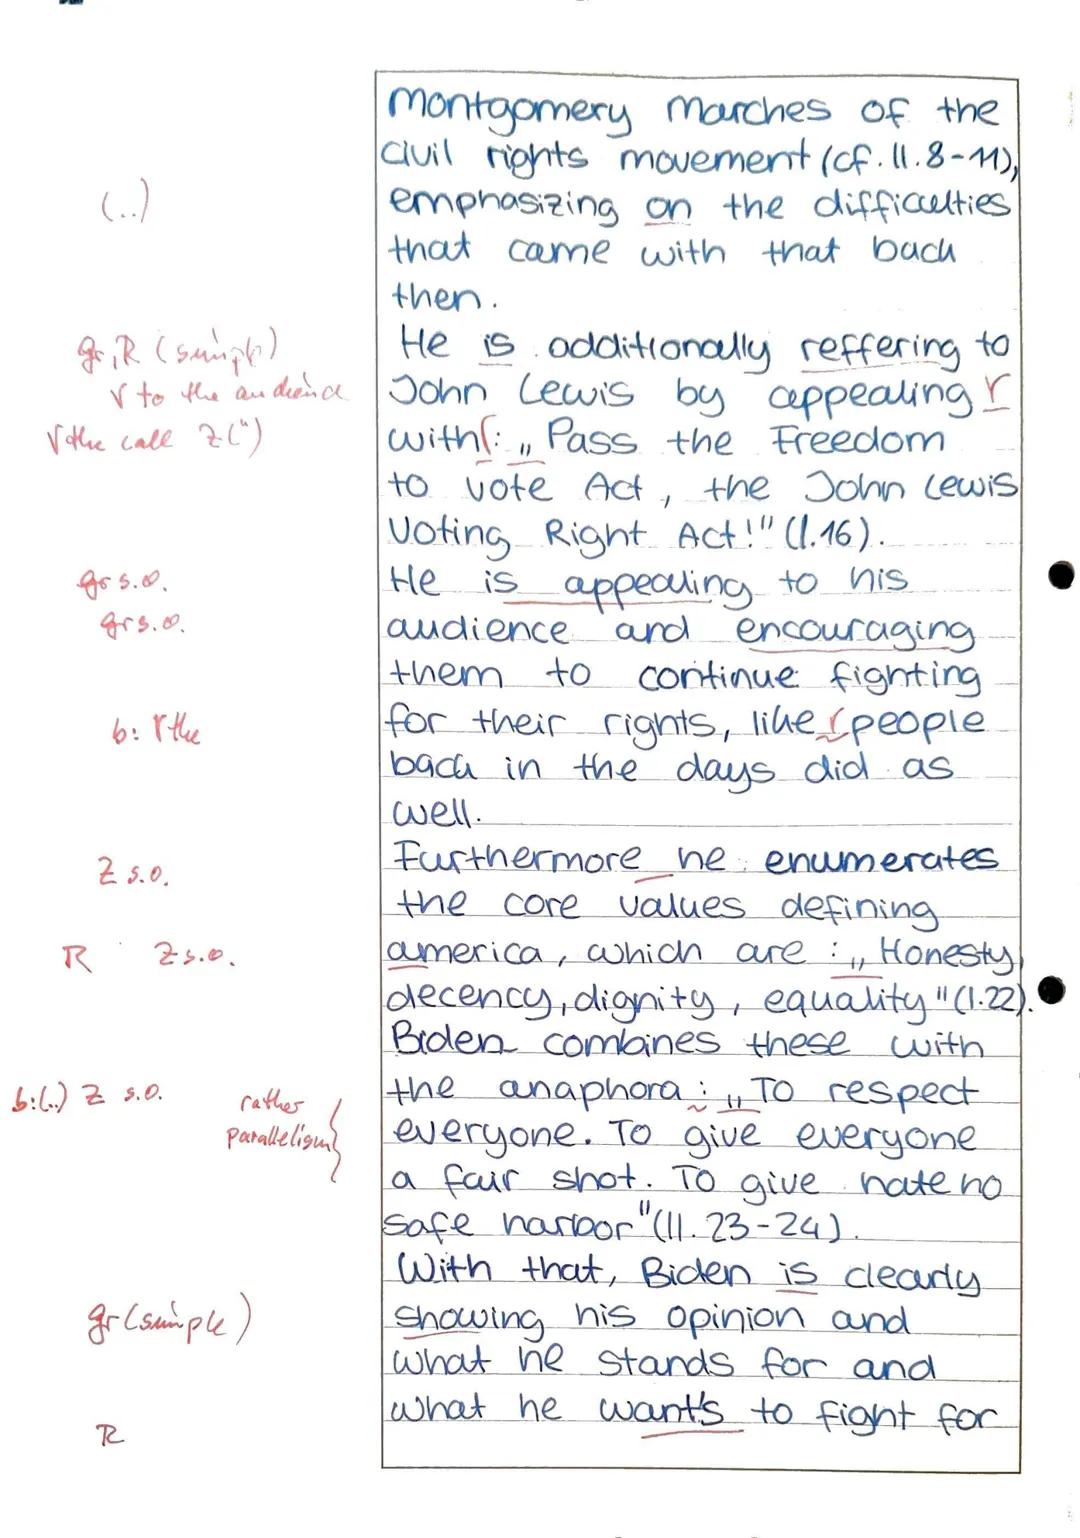 Montgomery Marches of the
civil rights movement (cf. ll. 8-11),
(..) emphasizing on the difficulties
that came with that back
then.
gr, R (simple) He is additionally reffering to
√ to the audience John Lewis by appealing √
√ the call Z(") with √: „Pass the Freedom
to vote Act, the John Lewis
Voting Right Act!" (l.16).
gr s.o. He is appealing to his
gr s.o. audience and encouraging
them to continue fighting
b: √ the for their rights, like √ people
back in the days did as
well.
Z s.o. Furthermore he enumerates
the core values defining
R Z s.o. america, which are: „Honesty,
decency, dignity, equality" (l.22).
Biden combines these with
b:(..) Z s.o. rather the anaphora: „To respect
parallelism everyone. To give everyone
a fair shot. To give hate no
safe harbor" (ll. 23-24).
With that, Biden is clearly
gr (simple) showing his opinion and
what he stands for and
R what he want's to fight for